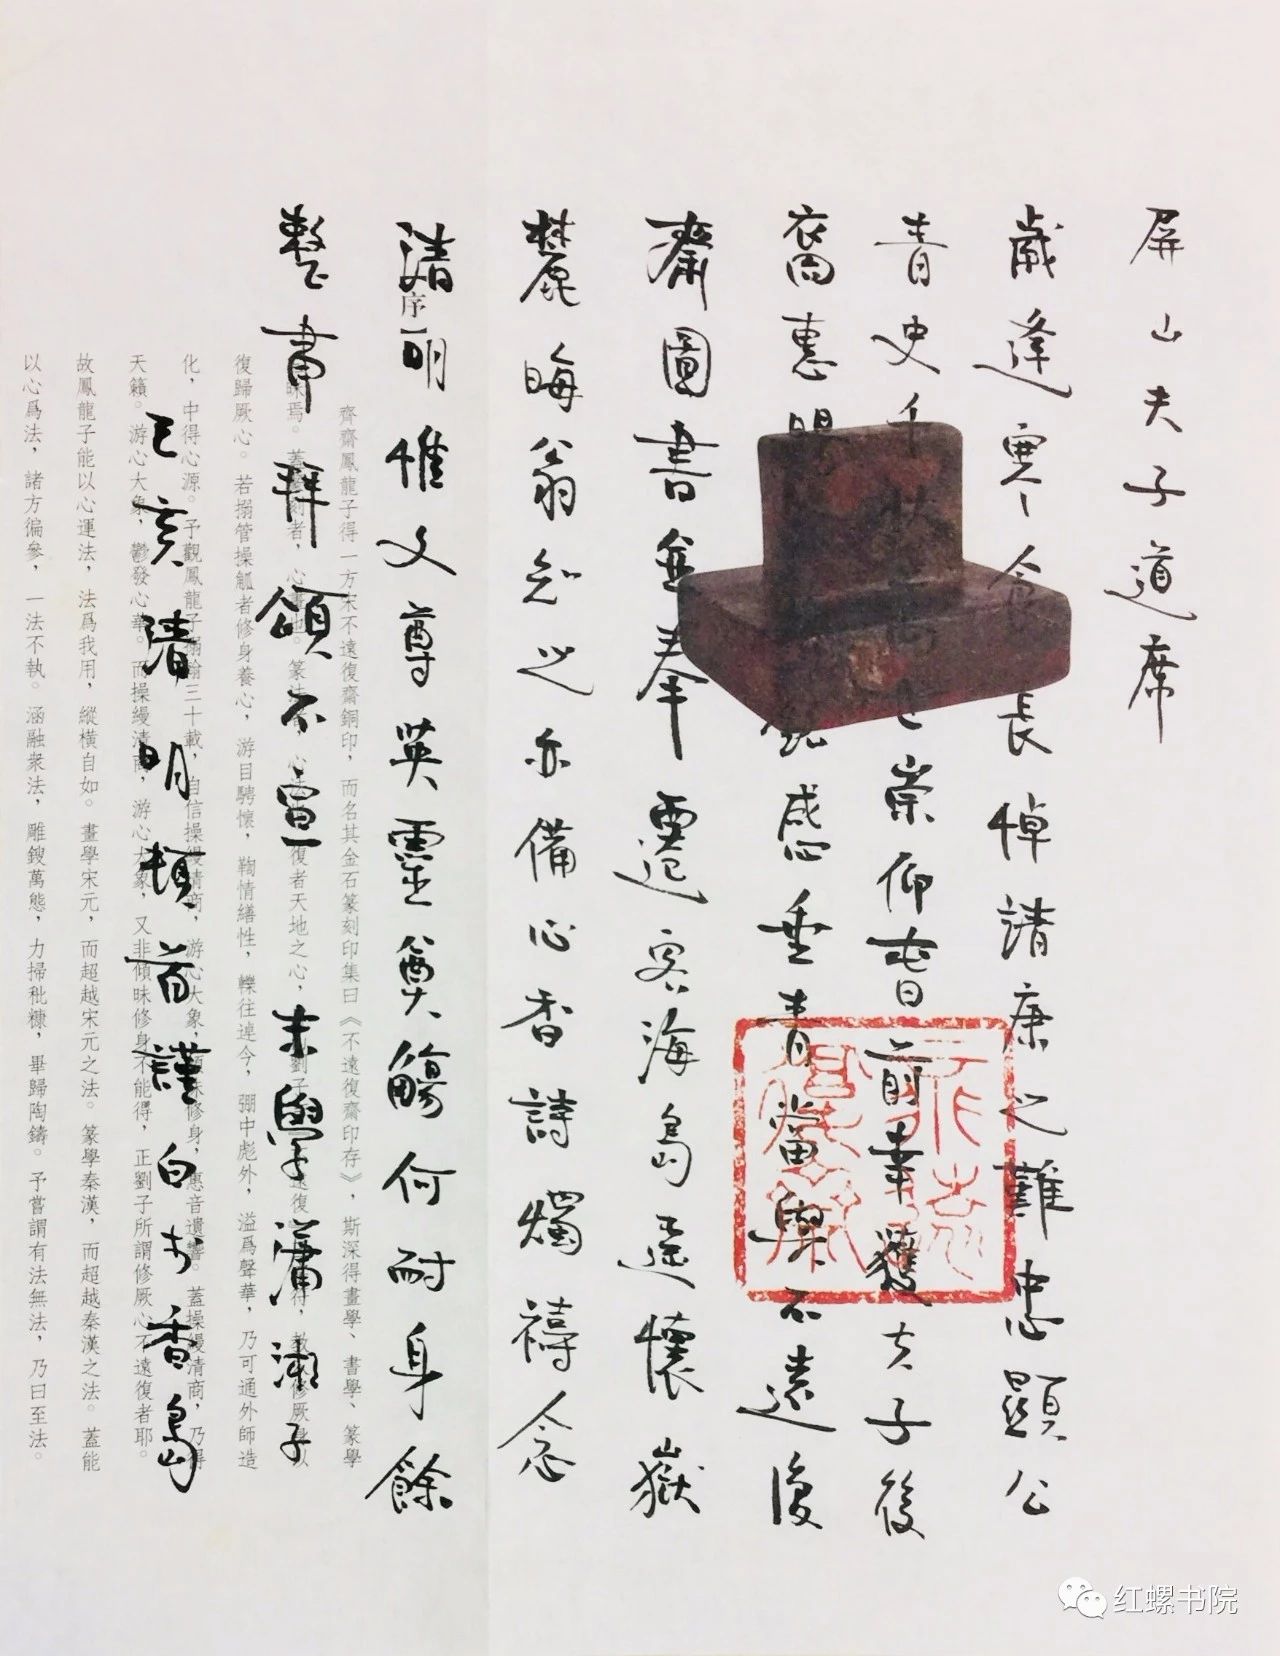 屏山夫子道席
歲逢寒食長悼靖康之難忠顯公
青史千秋崇仰昔前幸獲夫子後
裔惠感垂青當與不遠復
齋圖書並奉遷客海島遙懷嶽
麓晦翁知之亦備心香詩燭禱念
清明惟文尊英靈奠觴何耐身餘
整肅拜頌不宣末學瀟湘子
己亥清明頓首謹白於香島
序
齊齋鳳龍子得一方宋不遠復齋銅印，而名其金石篆刻印集曰《不遠復齋印存》，斯深得畫學、書學、篆學
復歸厥心。若搦管操觚者修身養心，游目騁懷，鞠情繕性，轢往逴今，弸中彪外，溢爲聲華，乃可通外師造
化，中得心源。予觀鳳龍子搦翰三十載，自信操縵清商，游心大象，惠音遺響。蓋操縵清商，乃得
天籟。游心大象，鬱發心華。而操縵清商，游心大象，又非傾昧修身不能得，正劉子所謂修厥心不遠復者耶。
故鳳龍子能以心運法，法爲我用，縱橫自如。畫學宋元，而超越宋元之法。篆學秦漢，而超越秦漢之法。蓋能
以心爲法，諸方徧參，一法不執。涵融衆法，雕鎪萬態，力掃秕糠，畢歸陶鑄。予嘗謂有法無法，乃曰至法。
红螺书院